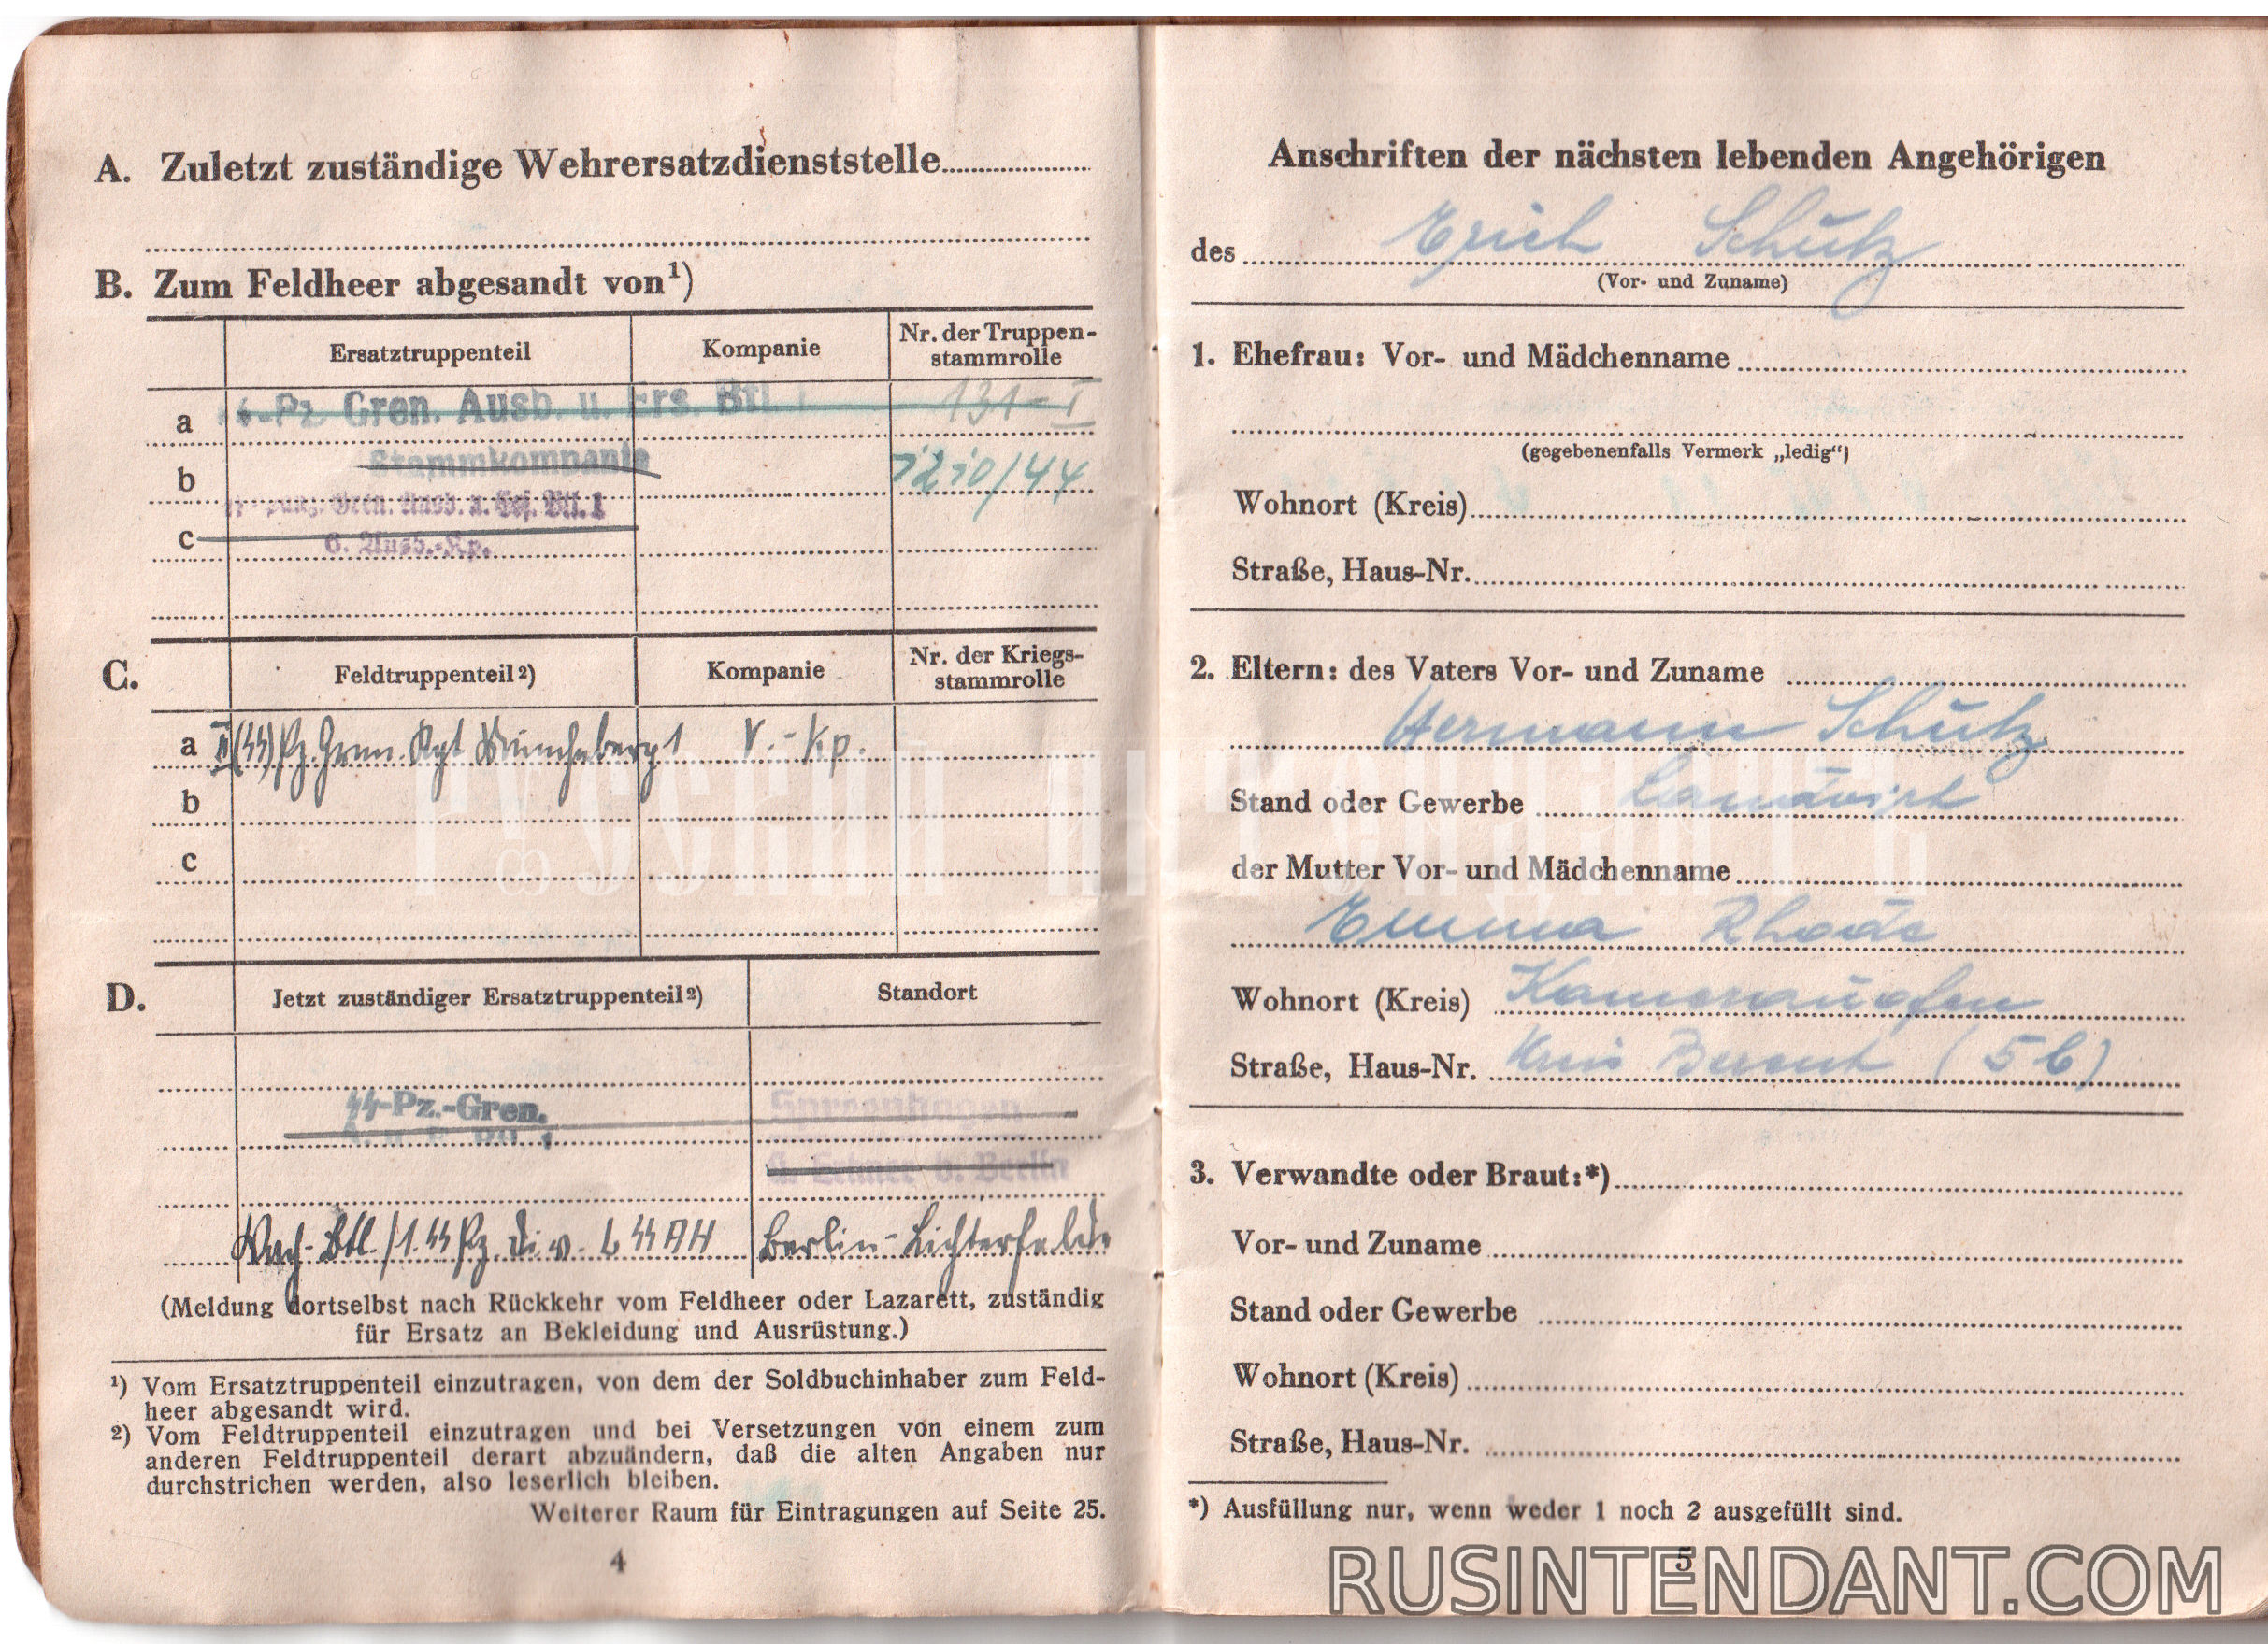 A. Zuletzt zuständige Wehrersatzdienststelle
B. Zum Feldheer abgesandt von¹)
Ersatztruppenteil Kompanie Nr. der Truppen-
stammrolle
a ᛋᛋ-Pz Gren. Ausb. u. Ers. Btl. 131-I
b Stammkompanie /44
Gren. Ausb. u. Ers. Btl. 1
c 6. Ausb.-Kp.
C. Feldtruppenteil²) Kompanie Nr. der Kriegs-
stammrolle
a II (ᛋᛋ) Pz. Gren. Rgt Müncheberg 1 V.-Kp.
b
c
D. Jetzt zuständiger Ersatztruppenteil²) Standort
ᛋᛋ-Pz.-Gren. Spreenhagen
b. Berlin
Wach-Btl./1. ᛋᛋ Pz. Div. LᛋᛋAH Berlin-Lichterfelde
(Meldung dortselbst nach Rückkehr vom Feldheer oder Lazarett, zuständig
für Ersatz an Bekleidung und Ausrüstung.)
¹) Vom Ersatztruppenteil einzutragen, von dem der Soldbuchinhaber zum Feld-
heer abgesandt wird.
²) Vom Feldtruppenteil einzutragen und bei Versetzungen von einem zum
anderen Feldtruppenteil derart abzuändern, daß die alten Angaben nur
durchstrichen werden, also leserlich bleiben.
Weiterer Raum für Eintragungen auf Seite 25.
4
Anschriften der nächsten lebenden Angehörigen
des Erich Schütz
(Vor- und Zuname)
1. Ehefrau: Vor- und Mädchenname
(gegebenenfalls Vermerk „ledig“)
Wohnort (Kreis)
Straße, Haus-Nr.
2. Eltern: des Vaters Vor- und Zuname
Hermann Schütz
Stand oder Gewerbe Landwirt
der Mutter Vor- und Mädchenname
Emma Rhode
Wohnort (Kreis)
Straße, Haus-Nr. Kreis Berent (5b)
3. Verwandte oder Braut:*)
Vor- und Zuname
Stand oder Gewerbe
Wohnort (Kreis)
Straße, Haus-Nr.
*) Ausfüllung nur, wenn weder 1 noch 2 ausgefüllt sind.
5
RUSINTENDANT.COM